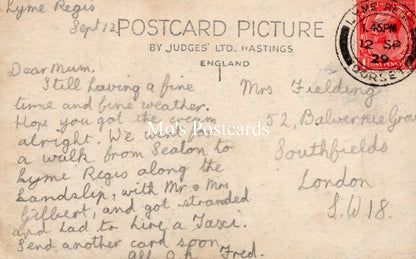 Lyme Regis
Sept 12
POSTCARD PICTURE
BY JUDGES' LTD., HASTINGS
ENGLAND
LYME REGIS
1.45 PM
12 SP
29
DORSET
ONE PENNY
Dear Mum.
Still having a fine
time and fine weather.
Hope you got the cream
alright. We went
a walk from Seaton to
Lyme Regis along the
Landslip, with Mr & Mrs
Gilbert, and got stranded
and had to hire a Taxi.
Send another card soon
All O.K. Fred.
Mrs Fielding
52, Balvernie Grove
Southfields
London
S.W 18.
Mo's Postcards